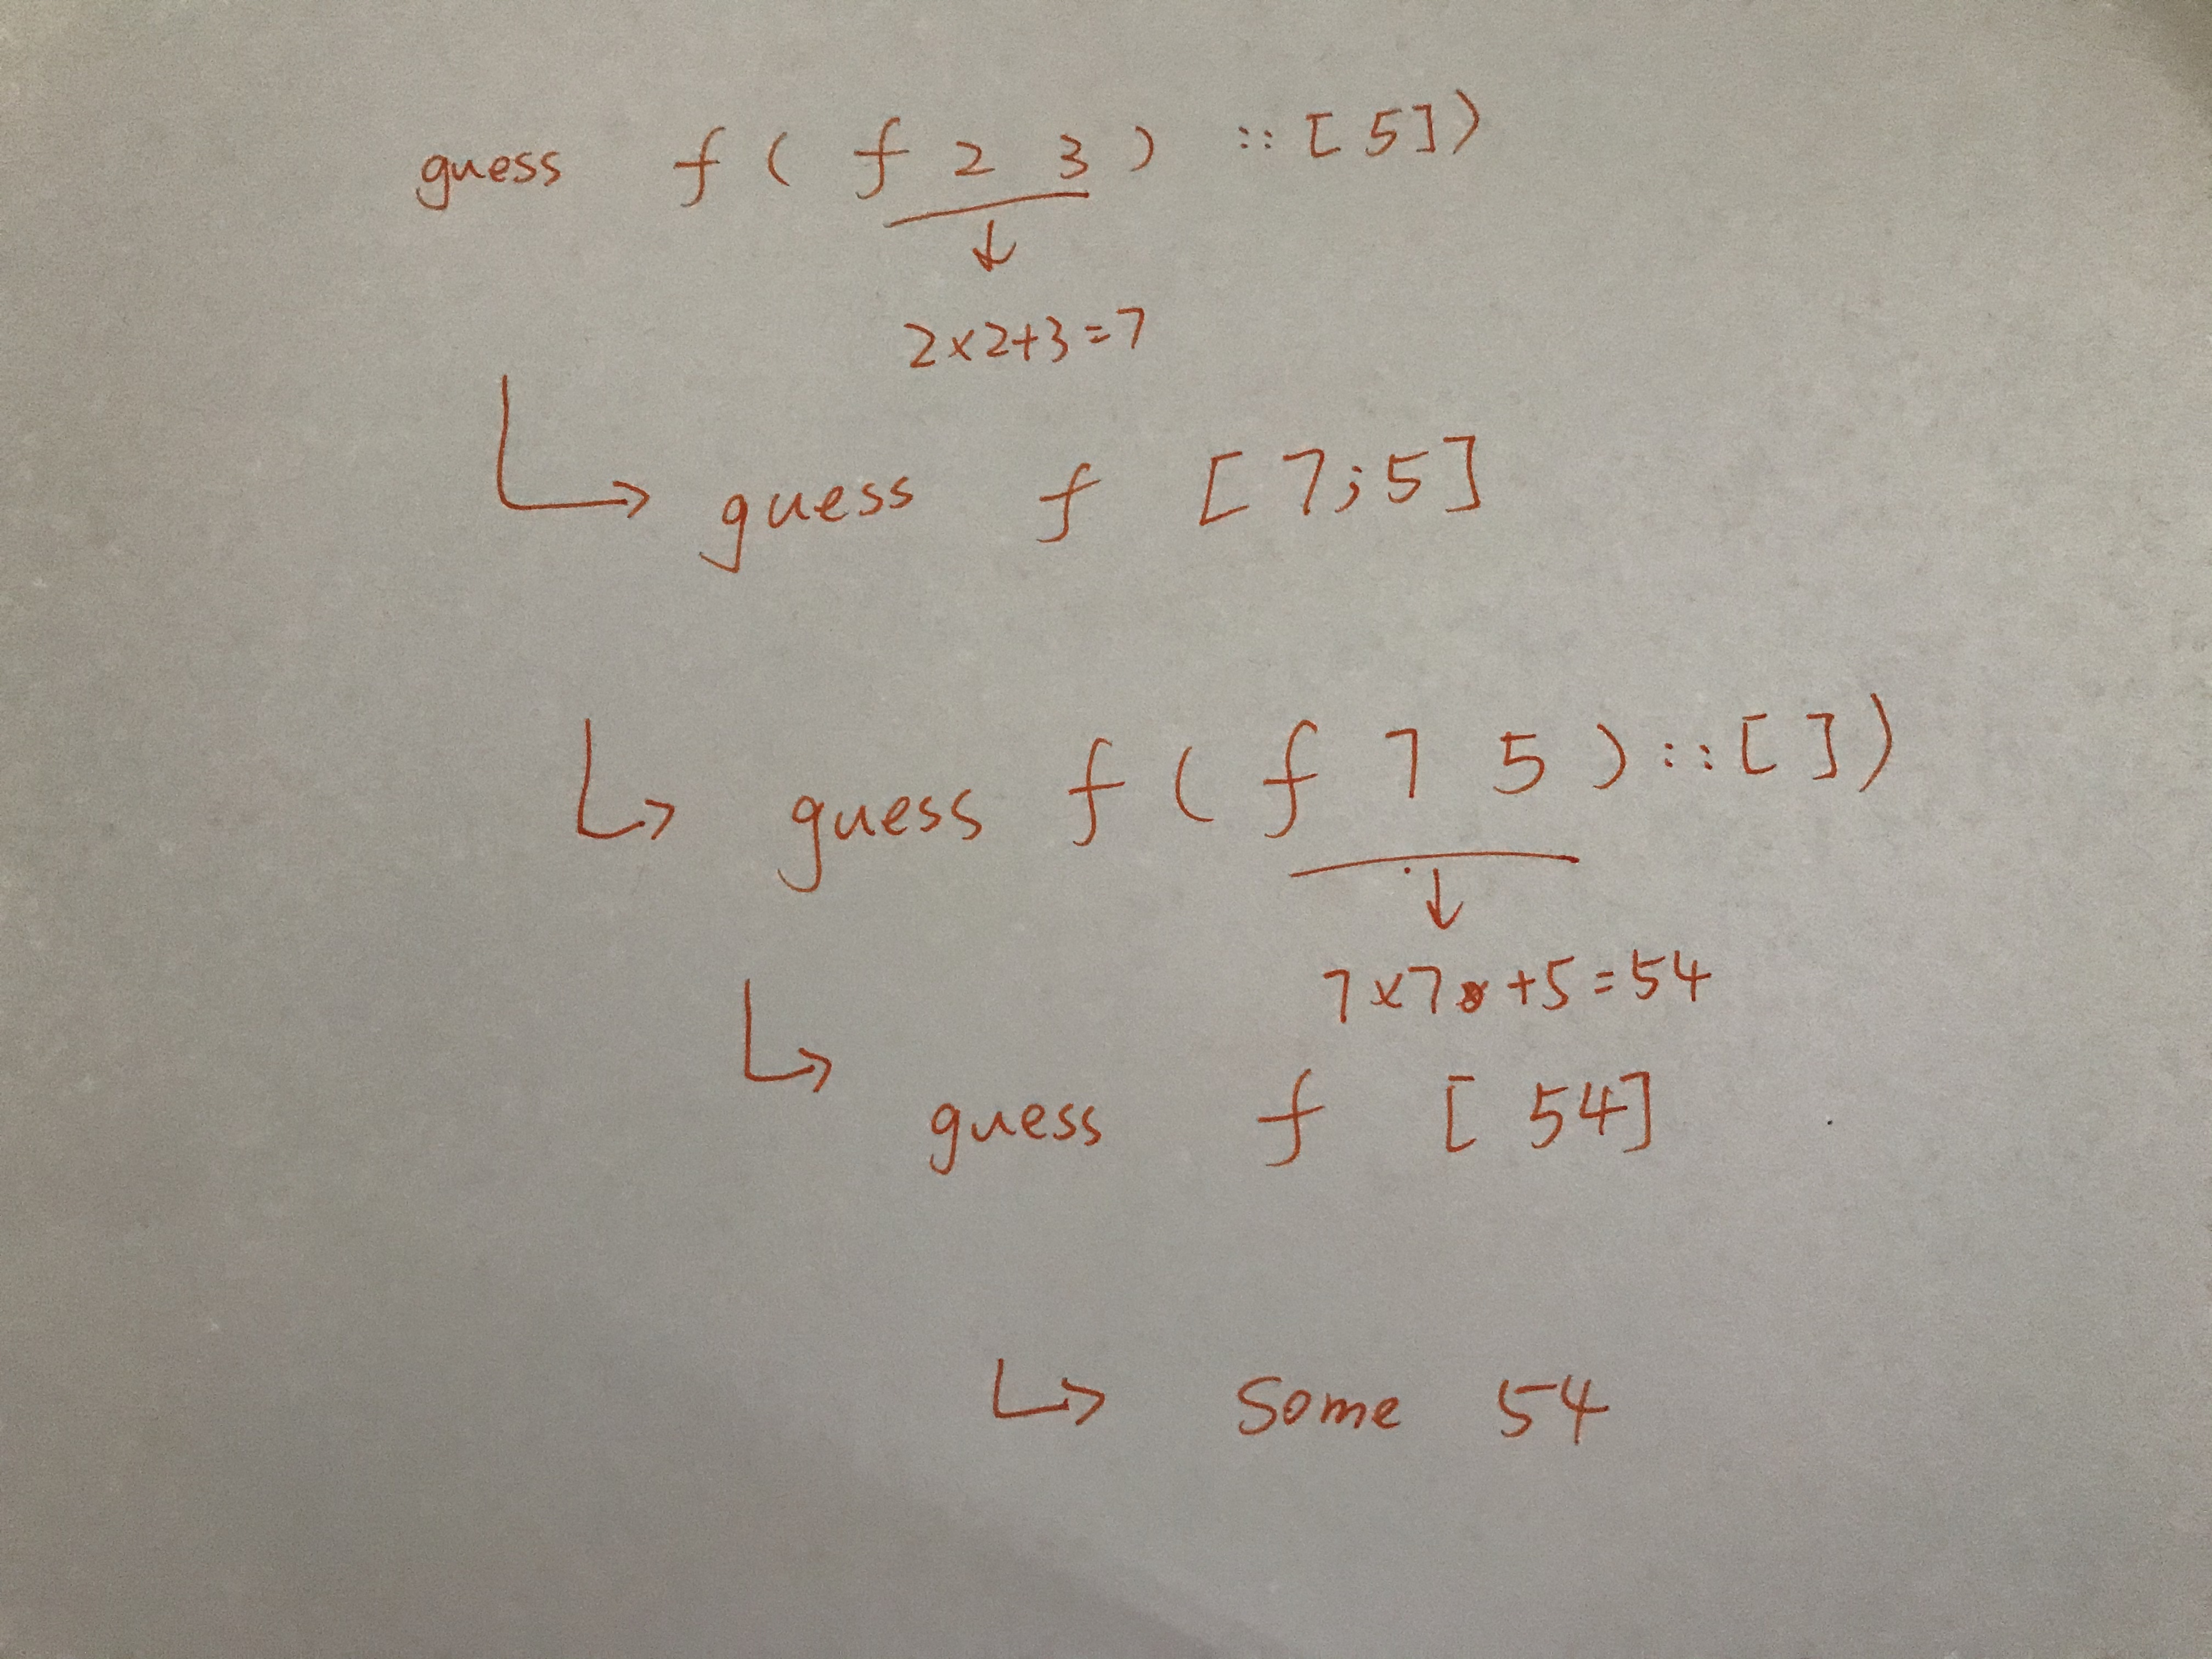 guess f ( f 2 3 ) :: [ 5 ] )
2×2+3=7
guess f [ 7 ; 5 ]
guess f ( f 7 5 ) :: [ ] )
7×7 +5=54
guess f [ 54 ]
Some 54